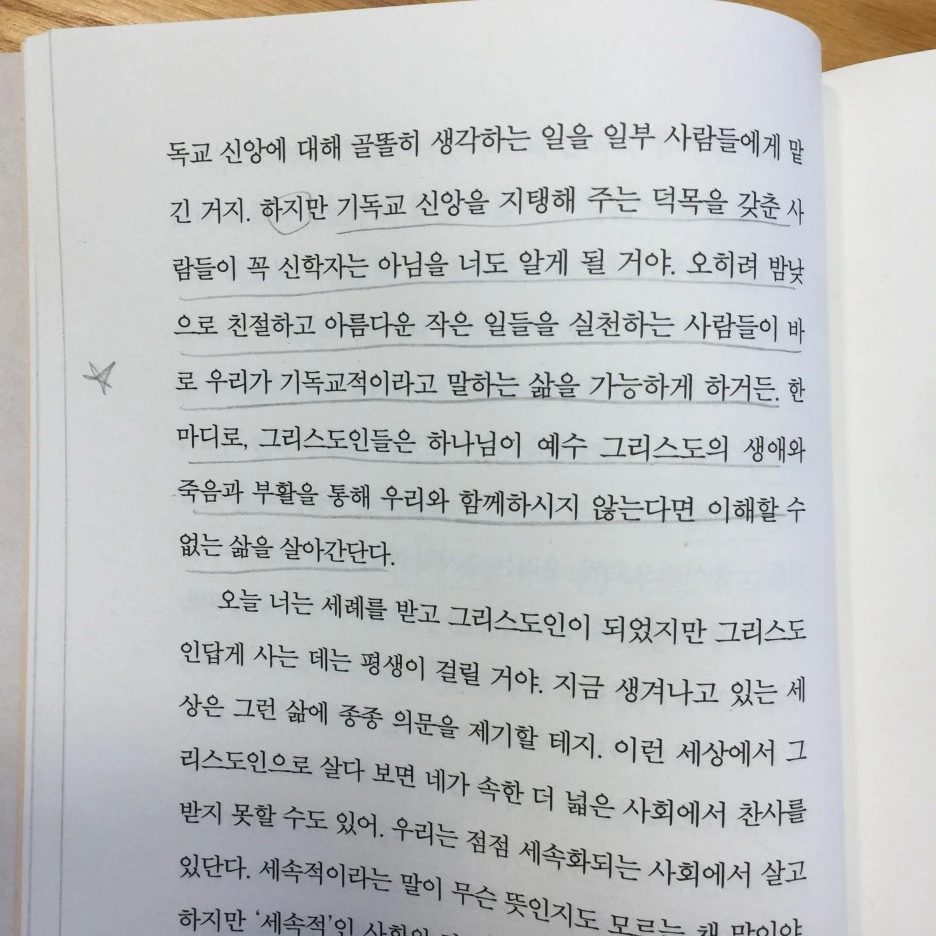 독교 신앙에 대해 골똘히 생각하는 일을 일부 사람들에게 맡
긴 거지. 하지만 기독교 신앙을 지탱해 주는 덕목을 갖춘 사
람들이 꼭 신학자는 아님을 너도 알게 될 거야. 오히려 밤낮
으로 친절하고 아름다운 작은 일들을 실천하는 사람들이 바
로 우리가 기독교적이라고 말하는 삶을 가능하게 하거든. 한
마디로, 그리스도인들은 하나님이 예수 그리스도의 생애와
죽음과 부활을 통해 우리와 함께하시지 않는다면 이해할 수
없는 삶을 살아간단다.
오늘 너는 세례를 받고 그리스도인이 되었지만 그리스도
인답게 사는 데는 평생이 걸릴 거야. 지금 생겨나고 있는 세
상은 그런 삶에 종종 의문을 제기할 테지. 이런 세상에서 그
리스도인으로 살다 보면 네가 속한 더 넓은 사회에서 찬사를
받지 못할 수도 있어. 우리는 점점 세속화되는 사회에서 살고
있단다. 세속적이라는 말이 무슨 뜻인지도 모르는 채 말이야.
하지만 ‘세속적’인 사회의